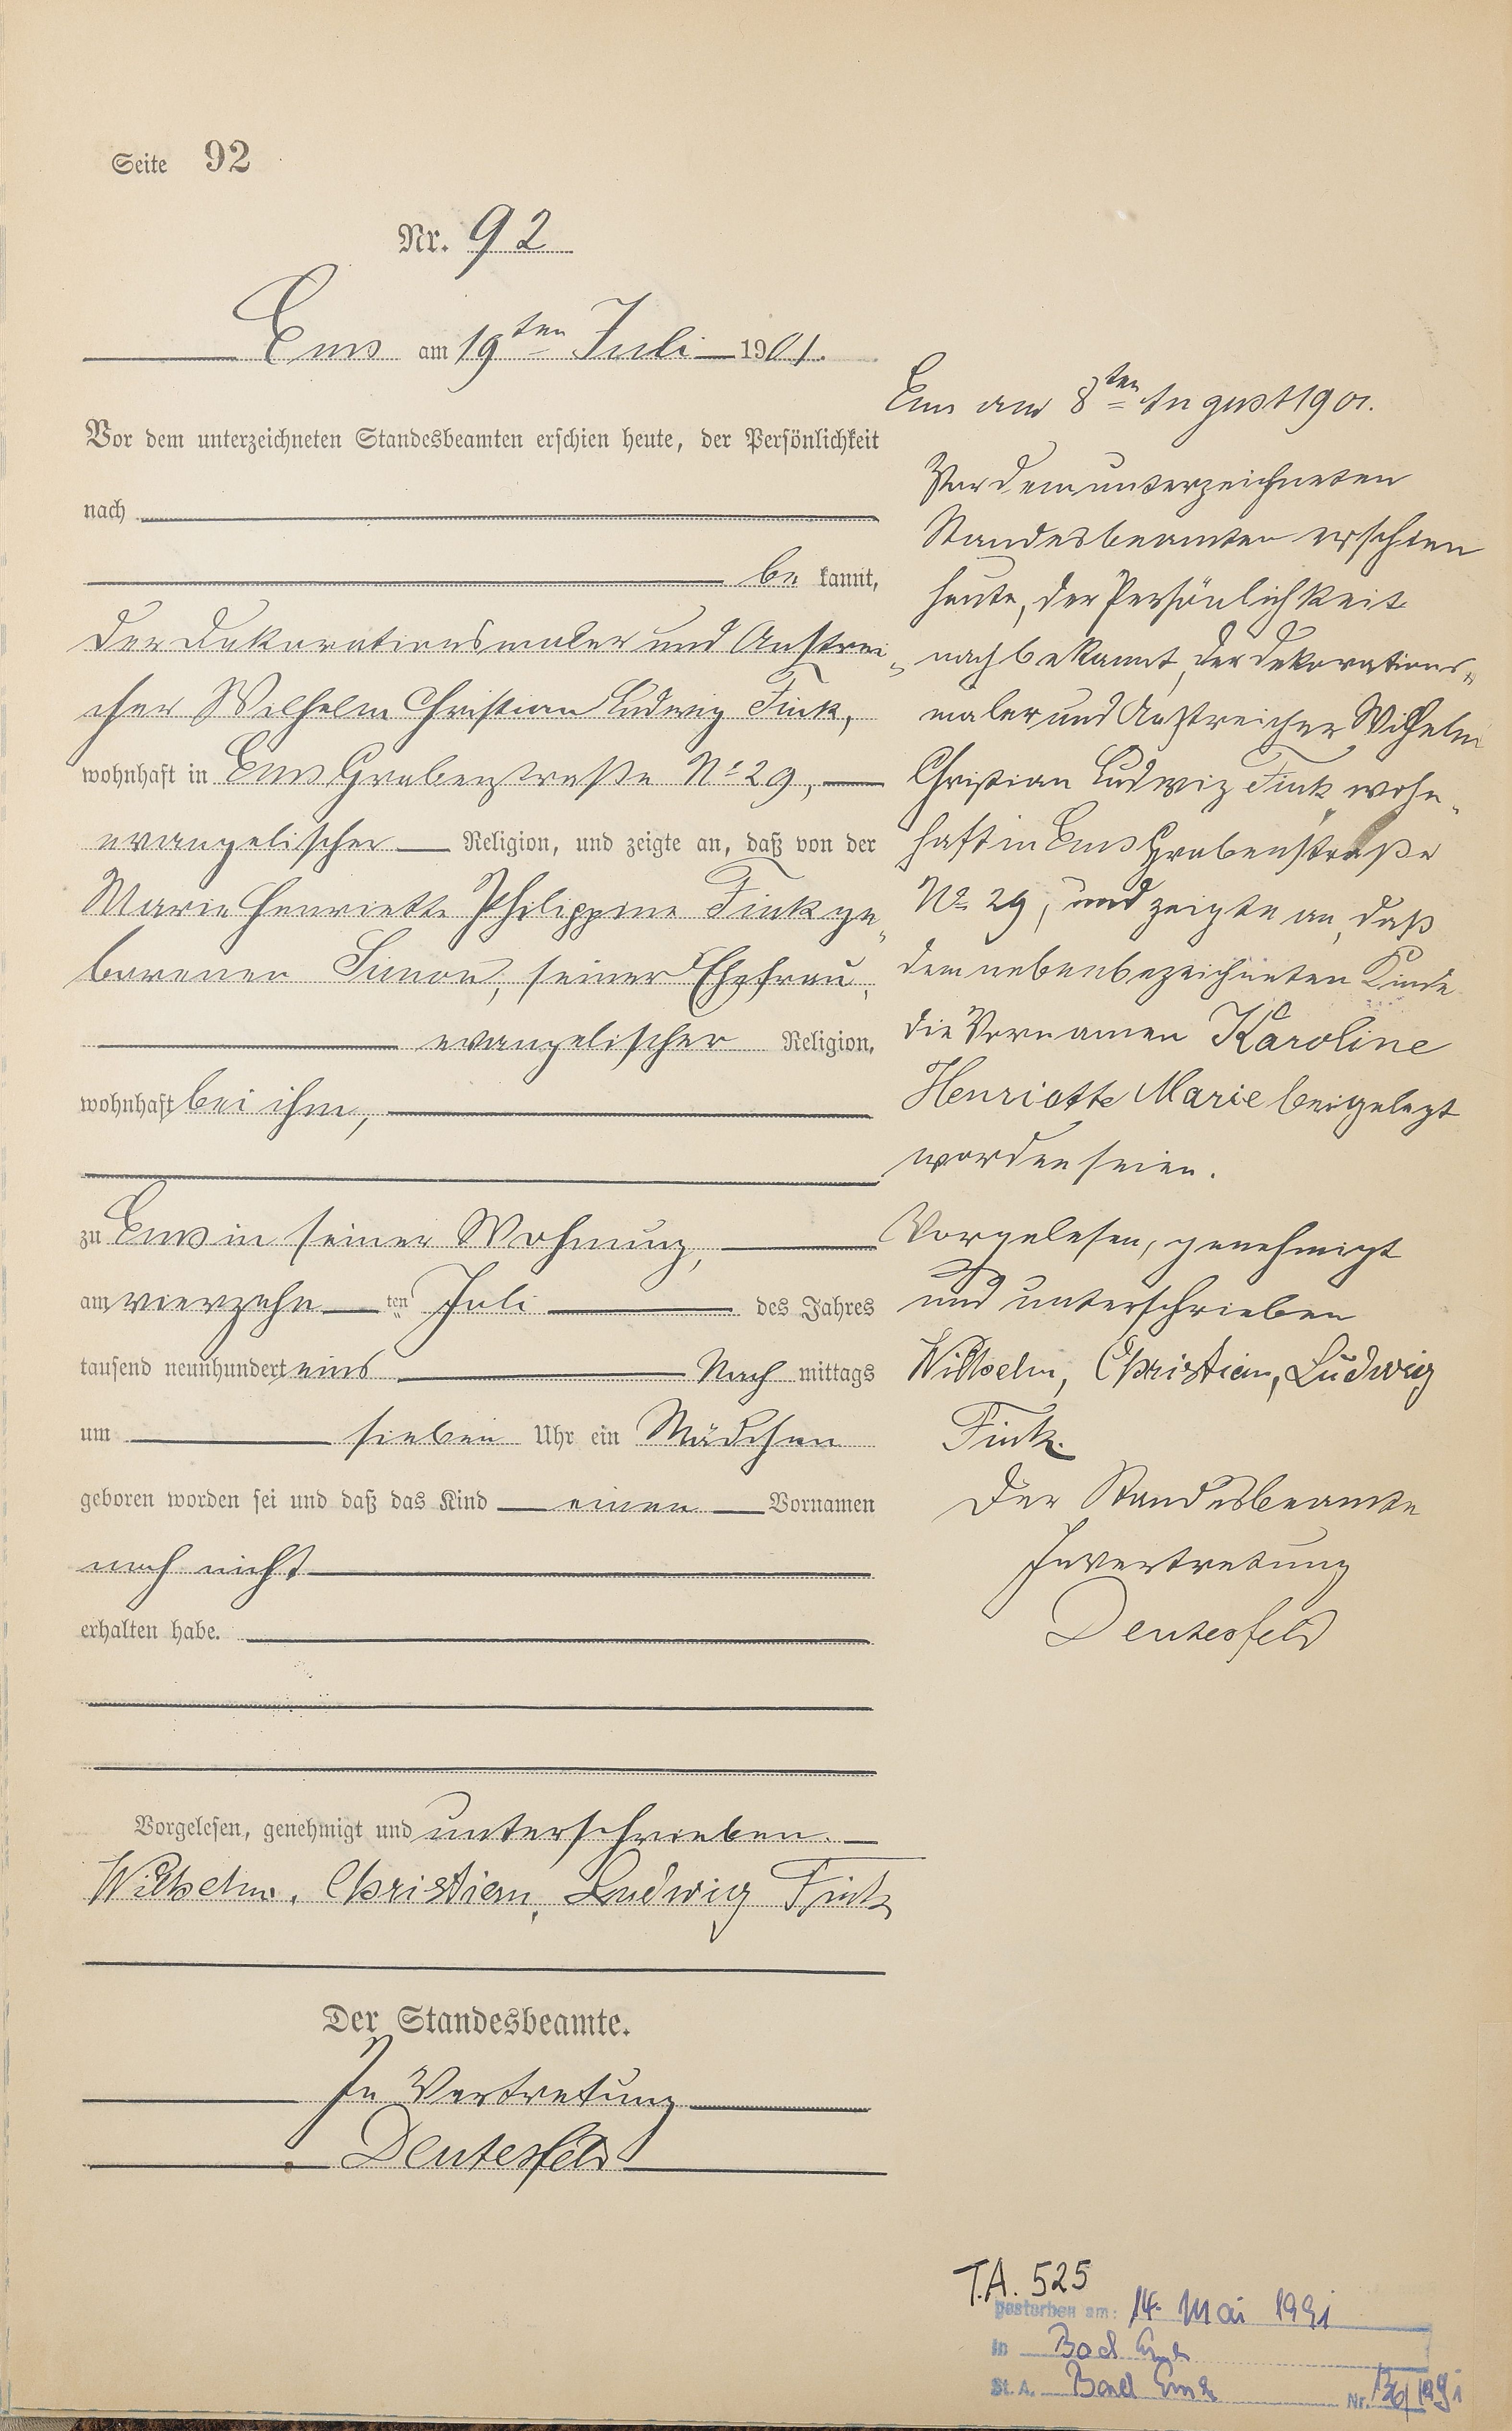 Seite 92
Nr. 92
Ems am 19ten Juli 1901.
Vor dem unterzeichneten Standesbeamten erschien heute, der Persönlichkeit
nach
be kannt,
der Dekorationsmaler und Anstrei-
cher Wilhelm Christian Ludwig Fink,
wohnhaft in Ems Grabenstraße No 29,
evangelischer Religion, und zeigte an, daß von der
Marie Henriette Philippine Fink ge-
borenen Simon, seiner Ehefrau,
evangelischer Religion,
wohnhaft bei ihm,
zu Ems in seiner Wohnung,
am vierzehn ten Juli des Jahres
tausend neunhundert eins Nach mittags
um sieben Uhr ein Mädchen
geboren worden sei und daß das Kind einen Vornamen
noch nicht
erhalten habe.
Vorgelesen, genehmigt und unterschrieben.
Wilhelm, Christian, Ludwig Fink
Der Standesbeamte.
In Vertretung
Deutesfeld
Ems am 8ten August 1901.
Vor dem unterzeichneten
Standesbeamten erschien
heute, der Persönlichkeit
nach bekannt, der Dekorations-
maler und Anstreicher Wilhelm
Christian Ludwig Fink, wohn-
haft in Ems Grabenstraße
No 29, und zeigte an, daß
dem nebenbezeichneten Kinde
die Vornamen Karoline
Henriette Marie beigelegt
worden seien.
Vorgelesen, genehmigt
und unterschrieben
Wilhelm, Christian, Ludwig
Fink.
Der Standesbeamte
In Vertretung
Deutesfeld
T.A. 525
gestorben am: 14. Mai 1991
in Bad Ems
St. A. Bad Ems Nr. 136/1991